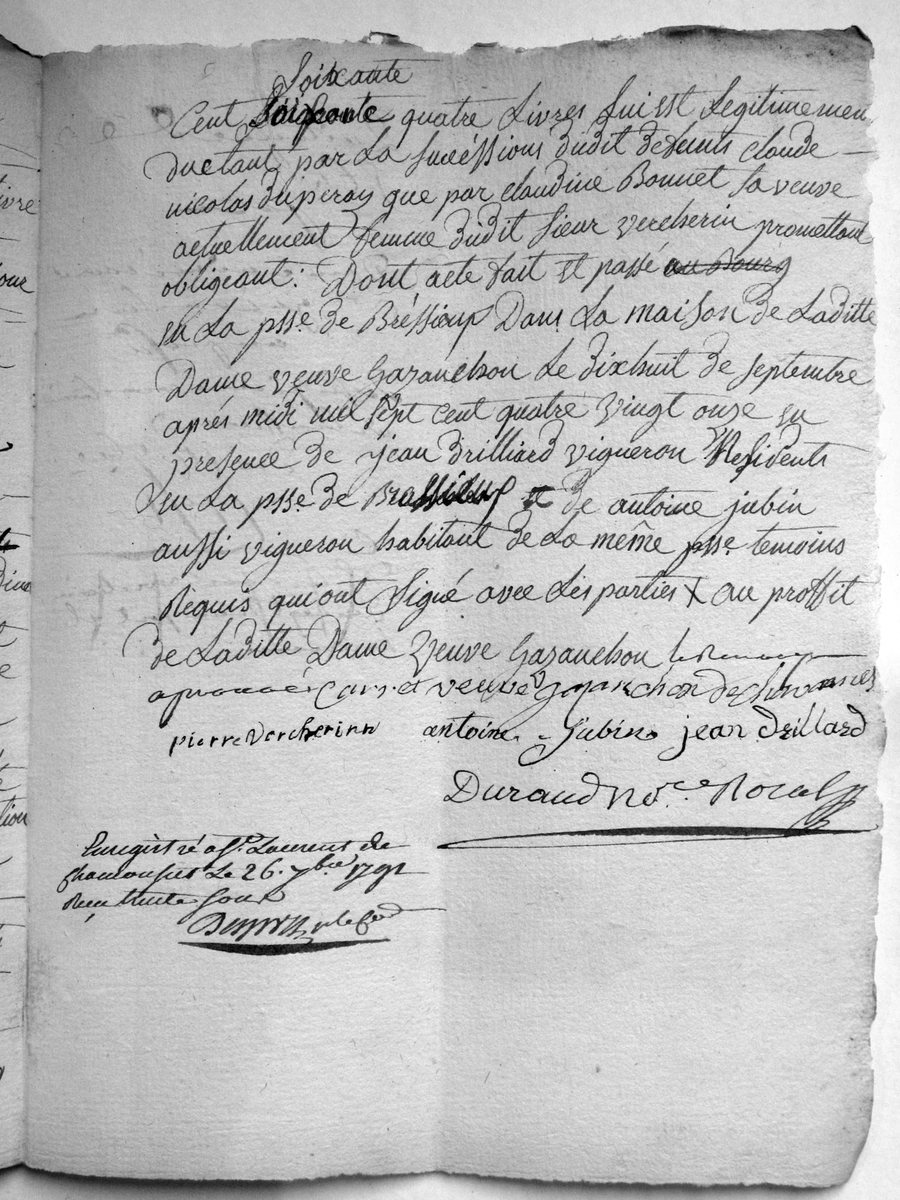 Soixante
Cent Soixante quatre Livres Lui est Legitimemen
Du etant par La succéssions dudit defunts claude
nicolas duperay que par claudine Bonnet sa veuve
actuellement femme dudit sieur vercherin promettant
obligeant: Dont acte fait et passé au Bourg
en La psse. de Bréssieux Dans La maison de Laditte
Dame veuve Gazanchon Le dixhuit de septembre
aprés midi mil sept cent quatre vingt onze en
presence de jean drilliard vigneron Residents
en La psse. de et de antoine jubin
aussi vigneron habitant de La même psse. temoins
Requis qui ont Signé avec Les parties X au proffit
de Laditte Dame Veuve Gazanchon
veuve gazanchon de
pierre Vercherinn antoine Jubin jean drillard
Durand No.re Roial
Enregistré a St. Laurent de
chamousset Le 26. 7bre 1791
Reçu trente sous